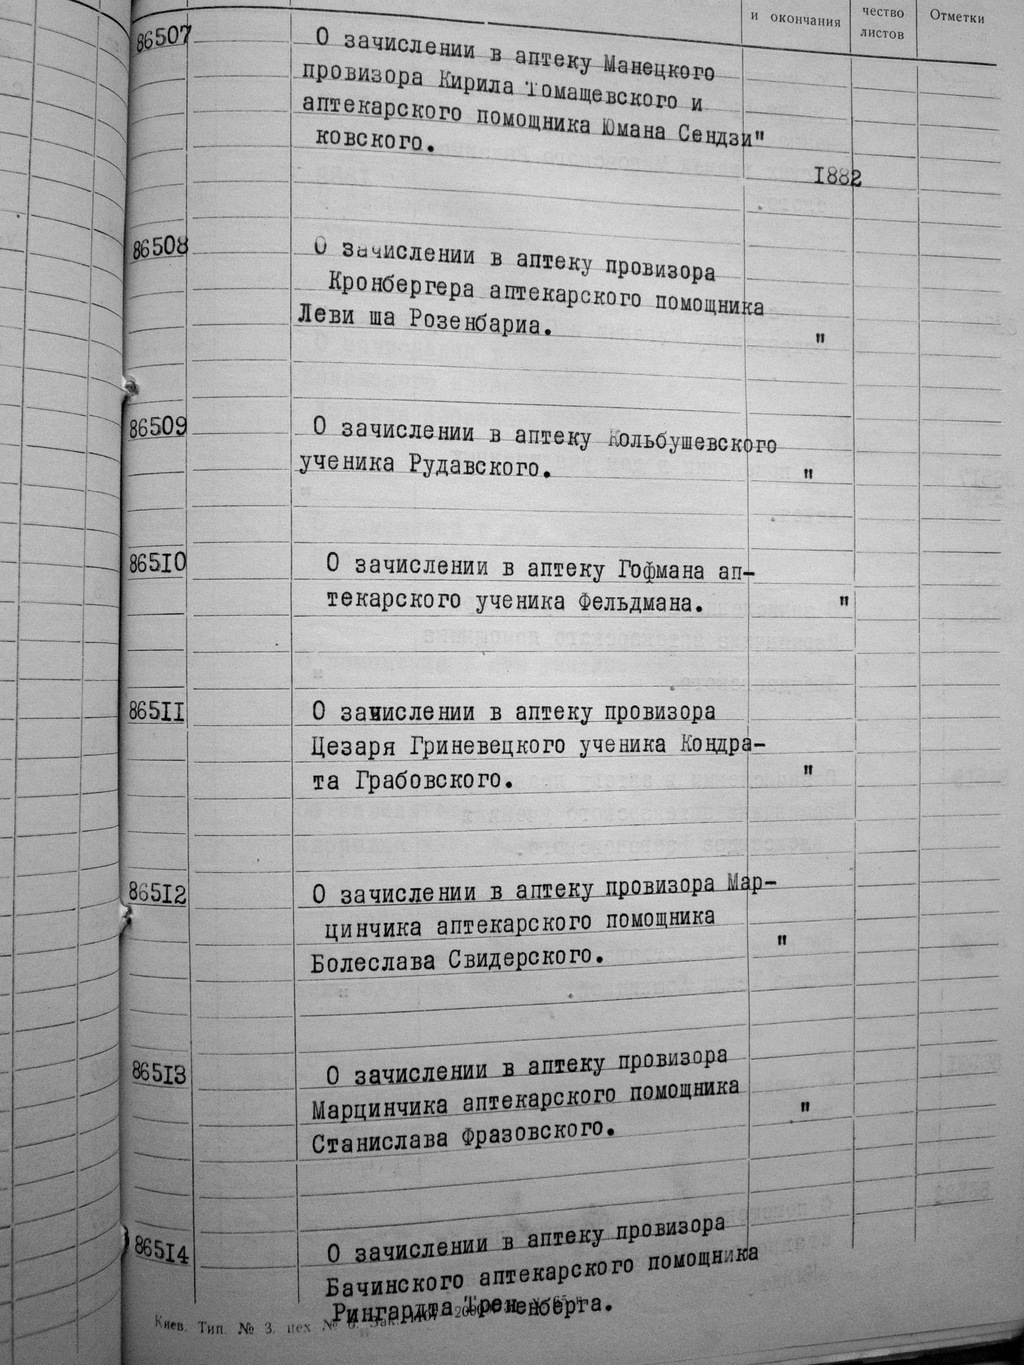 и окончания
чество
листов
Отметки
86507
О зачислении в аптеку Манецкого
провизора Кирила Томащевского и
аптекарского помощника Юмана Сендзи"
ковского.
1882
86508
О зачислении в аптеку провизора
Кронбергера аптекарского помощника
Леви ша Розенбариа.
"
86509
О зачислении в аптеку Кольбушевского
ученика Рудавского.
"
86510
О зачислении в аптеку Гофмана ап-
текарского ученика Фельдмана.
"
86511
О зачислении в аптеку провизора
Цезаря Гриневецкого ученика Кондра-
та Грабовского.
"
86512
О зачислении в аптеку провизора Мар-
цинчика аптекарского помощника
Болеслава Свидерского.
"
86513
О зачислении в аптеку провизора
Марцинчика аптекарского помощника
Станислава Фразовского.
"
86514
О зачислении в аптеку провизора
Бачинского аптекарского помощника
Рингардта Трененберга.
Киев. Тип. № 3. цех №